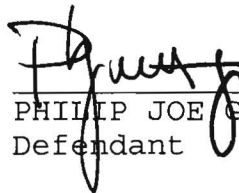 PHILIP JOE G
Defendant